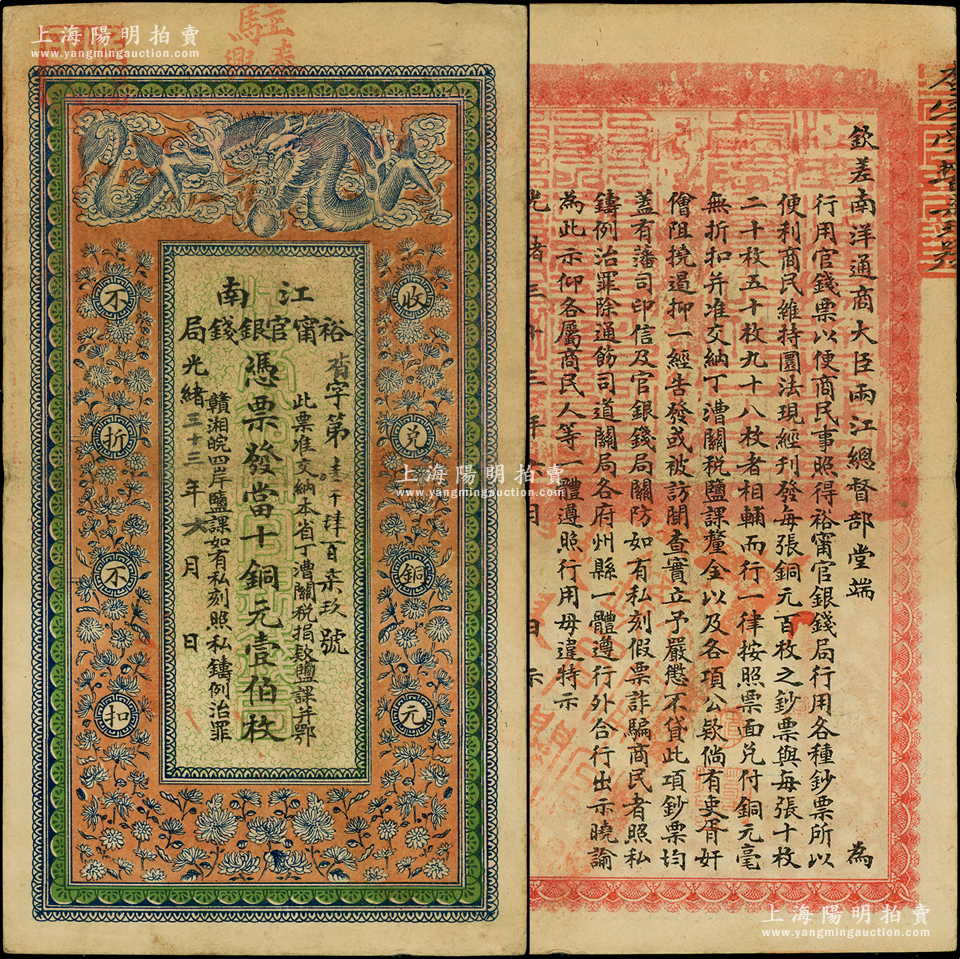 上海陽明拍賣
www.yangmingauction.com
江南
裕甯官銀錢局
字第壹千肆百柒玖號
憑票發當十銅元壹伯枚
此票准交納本省丁漕關稅指欵鹽課并鄂
贛湘皖四岸鹽課如有私刻照私鑄例治罪
光緒三十三年六月 日
收兌銅元
不折不扣
欽差南洋通商大臣兩江總督部堂端 為
行用官錢票以便商民事照得裕甯官銀錢局行用各種鈔票所以
便利商民維持圜法現經刊發每張銅元百枚之鈔票與每張十枚
二十枚五十枚九十八枚者相輔而行一律按照票面兌付銅元毫
無折扣并准交納丁漕關稅鹽課釐金以及各項公欵倘有吏胥奸
儈阻撓遏抑一經告發或被訪聞查實立予嚴懲不貸此項鈔票均
蓋有藩司印信及官銀錢局關防如有私刻假票詐騙商民者照私
鑄例治罪除通飭司道關局各府州縣一體遵行外合行出示曉諭
為此示仰各屬商民人等一體遵照行用毋違特示
光緒三十三年六月 日示
上海陽明拍賣
www.yangmingauction.com
上海陽明拍賣
www.yangmingauction.com